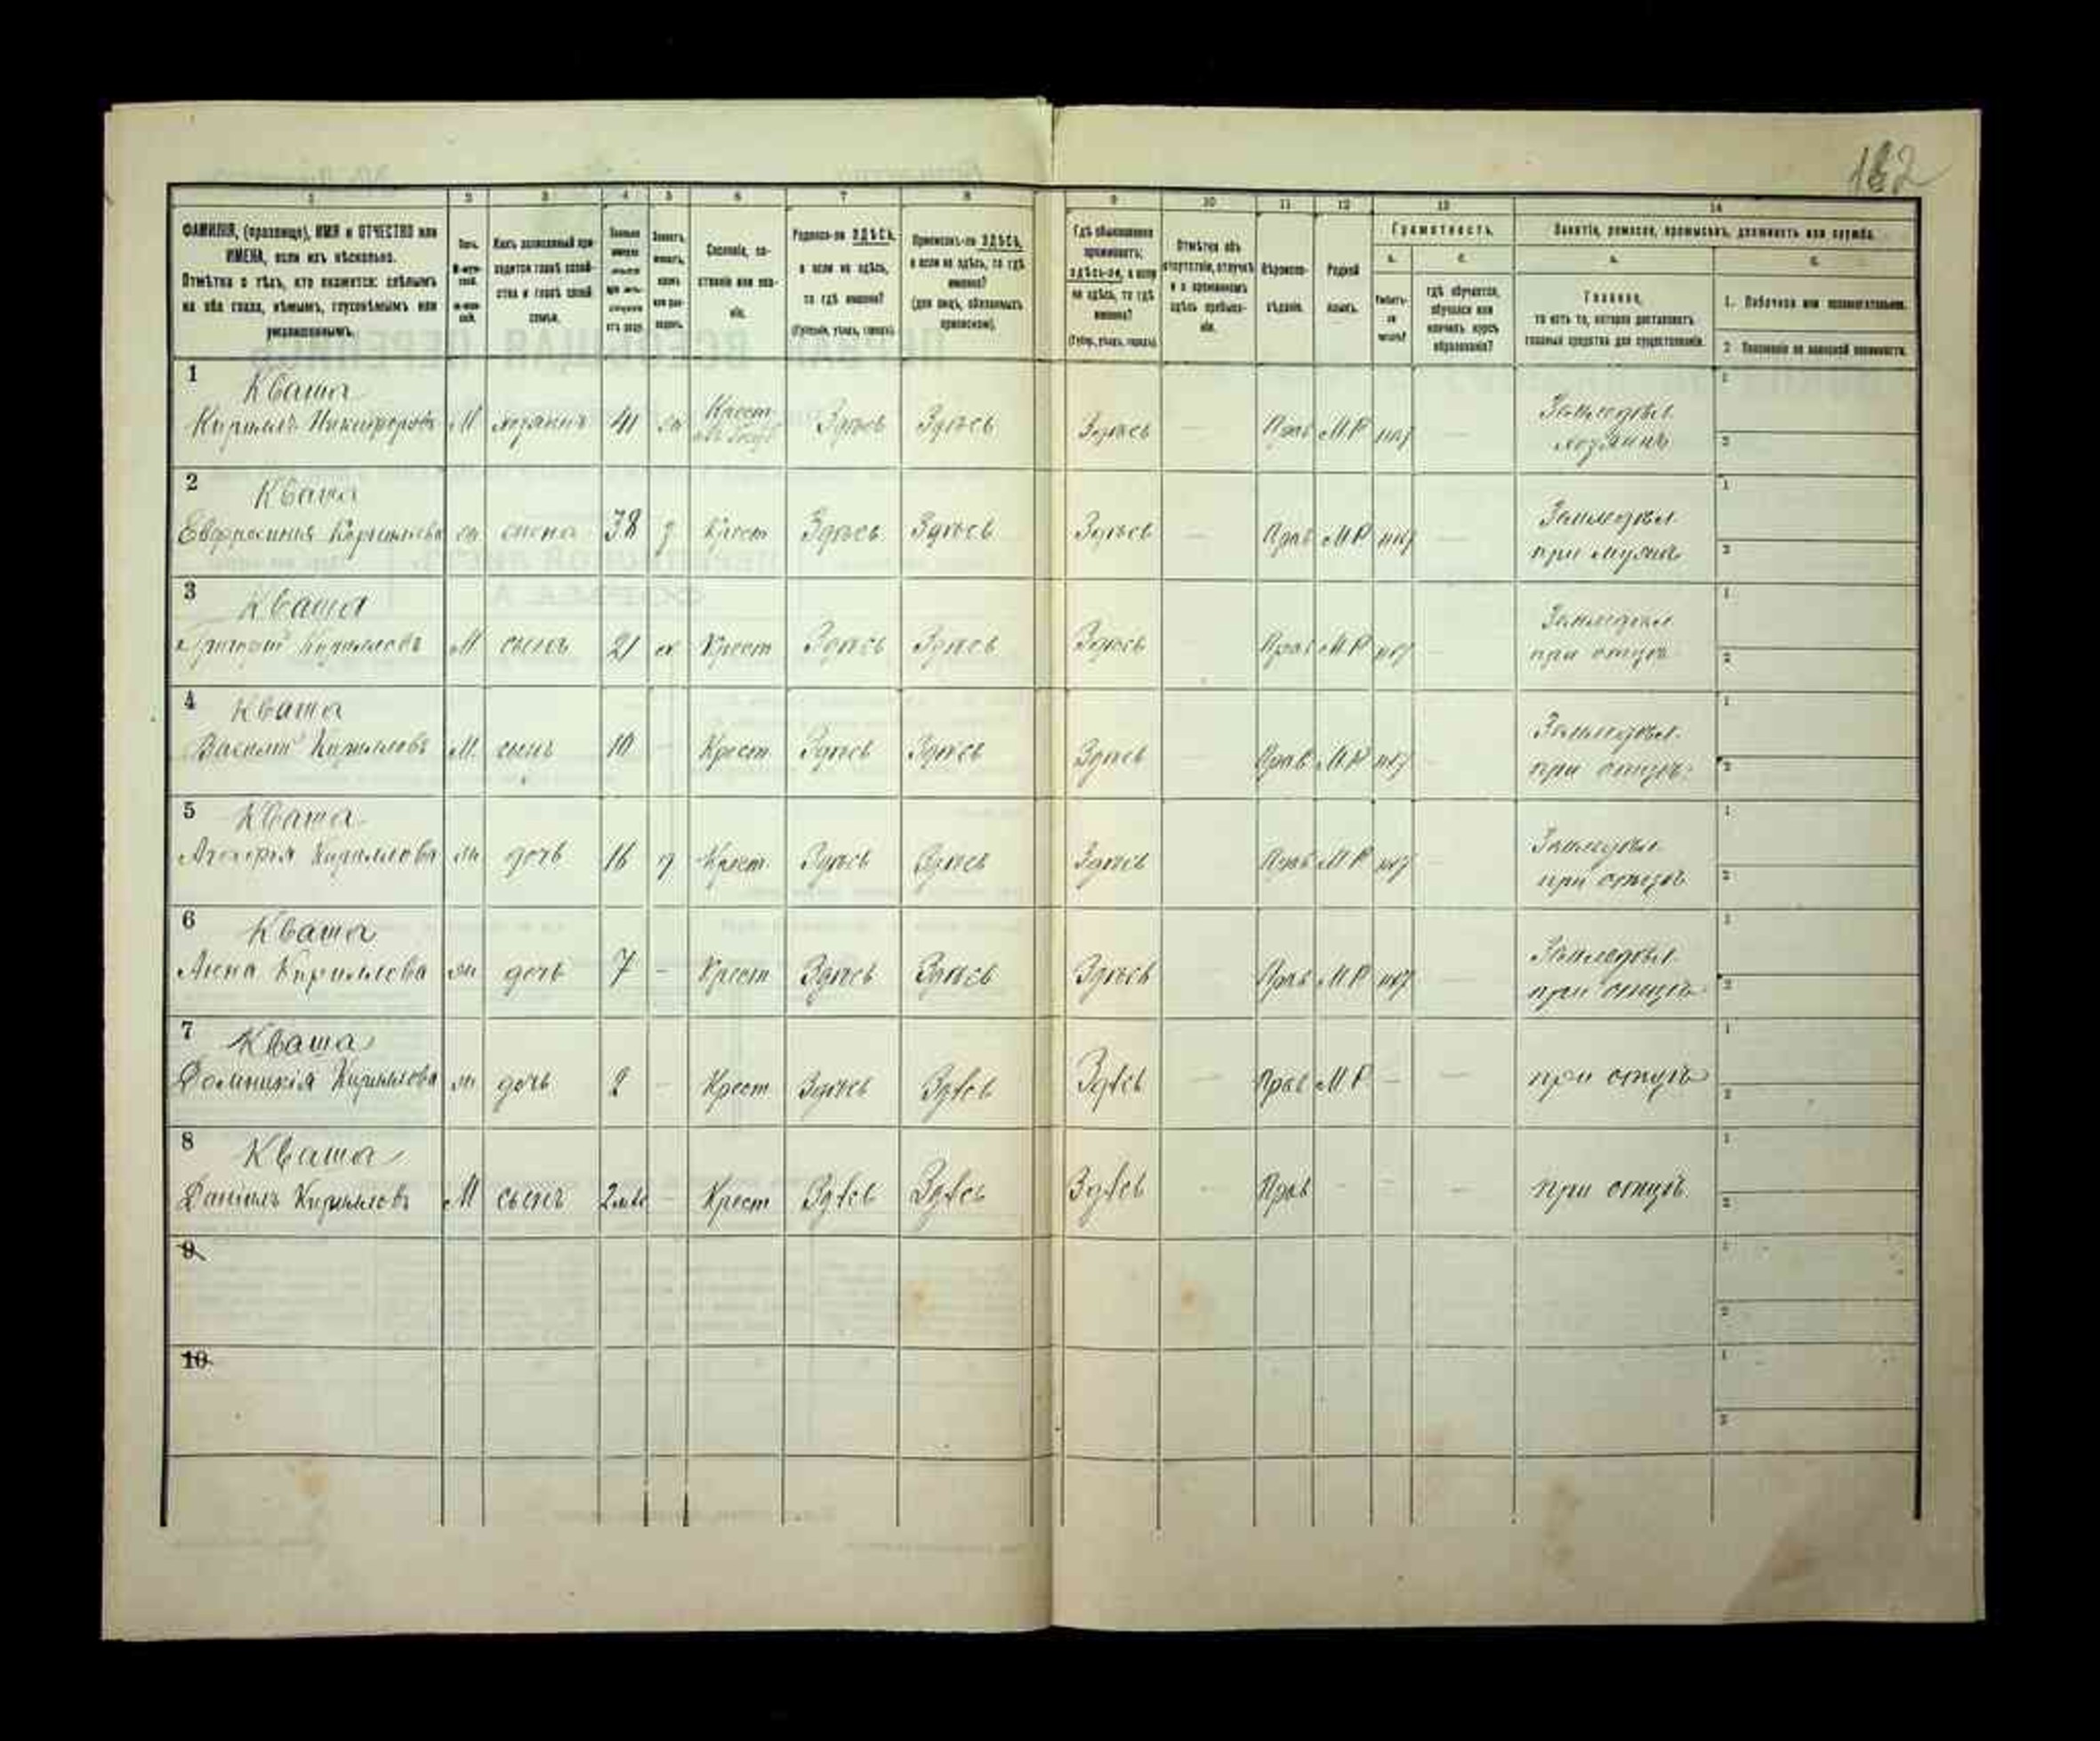 162
1 2 3 4 5 6 7 8 9 10 11 12 13 14
ФАМИЛІЯ, (прозвище), ИМЯ и ОТЧЕСТВО или
ИМЕНА, если ихъ нѣсколько.
Отмѣтка о тѣхъ, кто окажется: слѣпымъ
на оба глаза, нѣмымъ, глухонѣмымъ или
умалишеннымъ.
Полъ.
Какъ записанный при-
ходится главѣ хозяй-
ства и главѣ своей
семьи.
Сословіе, со-
стояніе или зва-
ніе.
Родился-ли ЗДѢСЬ,
а если не здѣсь,
то гдѣ именно?
(Губернія, уѣздъ, городъ).
Приписанъ-ли ЗДѢСЬ,
а если не здѣсь, то гдѣ
именно?
(для лицъ, обязанныхъ
припискою).
Гдѣ обыкновенно
проживаетъ:
здѣсь-ли, а если
не здѣсь, то гдѣ
именно?
(Губер., уѣздъ, городъ).
Отмѣтка объ
отсутствіи, отлучкѣ
и о временномъ
здѣсь пребыва-
ніи.
Вѣроиспо-
вѣданіе.
Родной
языкъ.
Грамотность.
а. б.
Умѣетъ-
ли
читать?
гдѣ обучается,
обучался или
кончилъ курсъ
образованія?
Занятіе, ремесло, промыселъ, должность или служба.
а. б.
Главное,
то есть то, которое доставляетъ
главныя средства для существованія.
1. Побочное или вспомогательное.
2 Положеніе по воинской повинности.
1 Кваша Крест Земледѣл 1
Кириллъ Никифоровъ М хозяинъ 41 Здѣсь Здѣсь Здѣсь — Прав М.Р — хозяинъ 2
2 Кваша Земледѣл 1
Евфросинія жена 38 Крест Здѣсь Здѣсь Здѣсь — Прав М.Р — при мужѣ 2
3 Кваша Земледѣл 1
Григорій Кирилловъ М сынъ 21 Крест Здѣсь Здѣсь Здѣсь Прав М.Р — при отцѣ 2
4 Кваша Земледѣл 1
Василій Кирилловъ М. сынъ 10 — Крест Здѣсь Здѣсь Здѣсь — Прав М.Р — при отцѣ 2
5 Кваша Земледѣл 1
Кириллова дочь 16 Крест Здѣсь Здѣсь Здѣсь Прав М.Р — при отцѣ 2
6 Кваша Земледѣл 1
Анна Кириллова ж дочь 7 — Крест Здѣсь Здѣсь Здѣсь Прав М.Р при отцѣ 2
7 Кваша 1
Доминикія Кириллова ж дочь 2 — Крест Здѣсь Здѣсь Здѣсь — Прав М.Р — — при отцѣ 2
8 Кваша 1
Даніилъ Кирилловъ М сынъ — Крест Здѣсь Здѣсь Здѣсь — Прав — — — при отцѣ 2
9 1
2
10 1
2